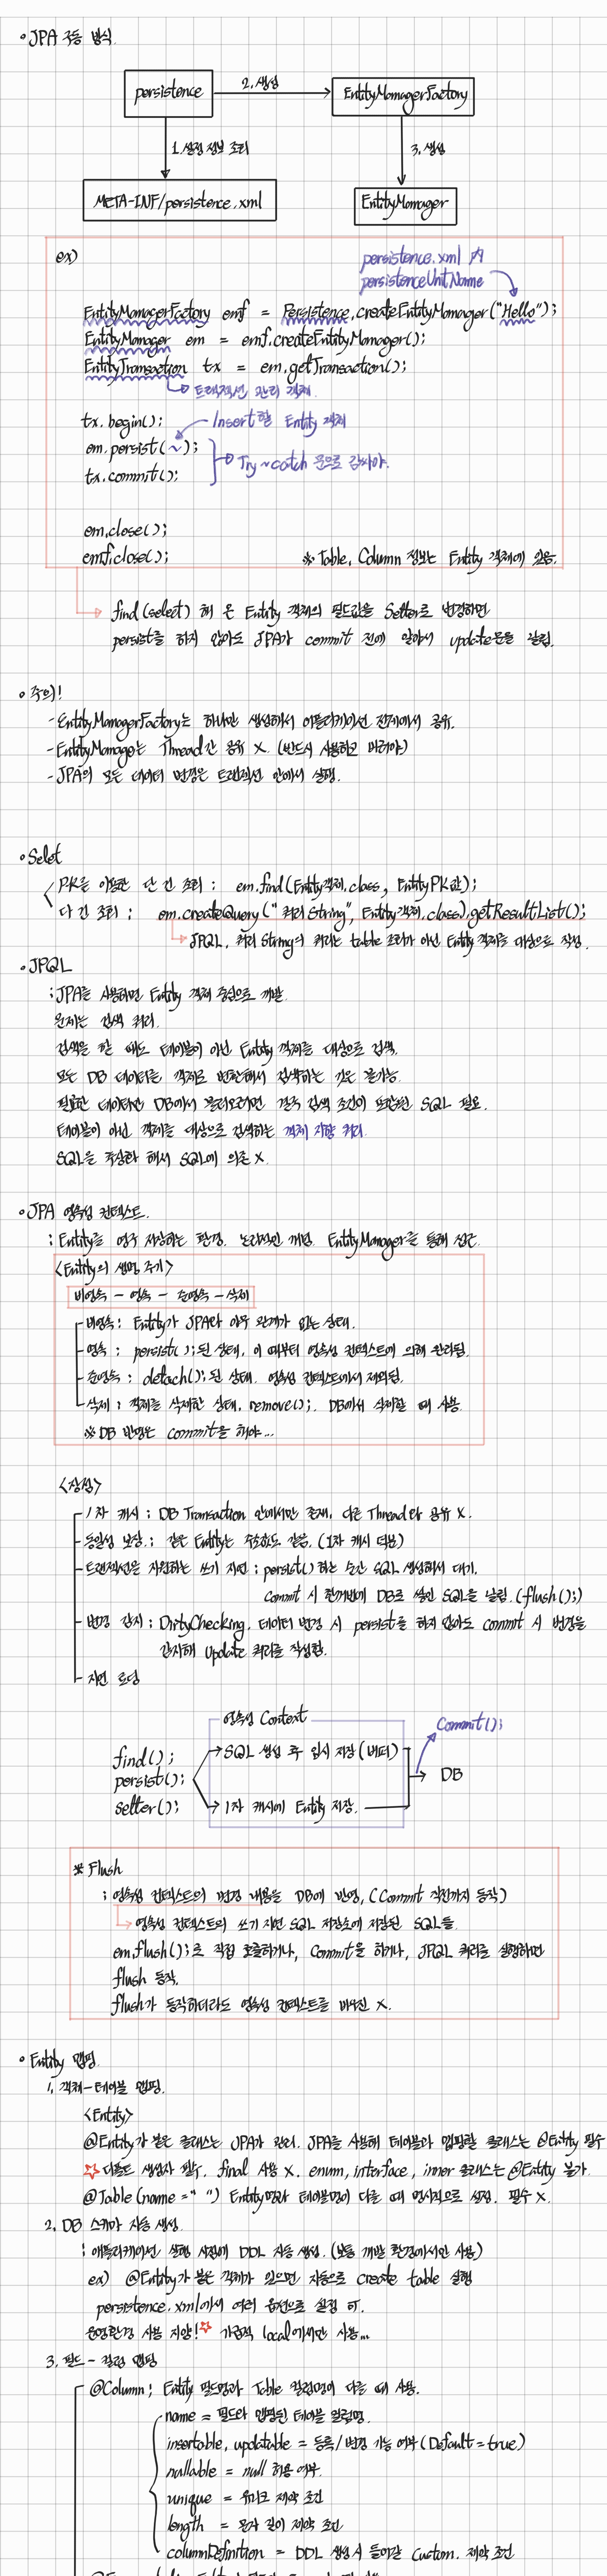 • JPA 구동 방식.
persistence
2. 생성
EntityManagerFactory
1. 설정 정보 조회
3. 생성
META-INF/persistence.xml
EntityManager
ex)
persistence.xml 內
persistenceUnitName
EntityManagerFactory emf = Persistence.createEntityManager("Hello");
EntityManager em = emf.createEntityManager();
EntityTransaction tx = em.getTransaction();
트랜잭션 관리 객체.
tx.begin(); Insert할 Entity 객체
em.persist(~);
Try~catch 문으로 감싸야.
tx.commit();
em.close();
emf.close(); ※ Table, Column 정보는 Entity 객체에 있음.
find(select) 해 온 Entity 객체의 필드값을 Setter로 변경하면
persist를 하지 않아도 JPA가 commit 전에 알아서 update문을 날림.
• 주의!
- EntityManagerFactory는 하나만 생성해서 어플리케이션 전체에서 공유.
- EntityManager는 Thread간 공유 X. (반드시 사용하고 버려야)
- JPA의 모든 데이터 변경은 트랜잭션 안에서 실행.
• Selet
PK를 이용한 단 건 조회 : em.find(Entity객체.class, EntityPK값);
다 건 조회 : em.createQuery("쿼리 String", Entity객체.class).getResultList();
JPQL, 쿼리 String의 쿼리는 table 조회가 아닌 Entity 객체를 대상으로 작성.
• JPQL
; JPA를 사용하면 Entity 객체 중심으로 개발.
문제는 검색 쿼리.
검색을 할 때도 테이블이 아닌 Entity 객체를 대상으로 검색.
모든 DB 데이터를 객체로 변환해서 검색하는 것은 불가능.
필요한 데이터만 DB에서 불러오려면 결국 검색 조건이 포함된 SQL 필요.
테이블이 아닌 객체를 대상으로 검색하는 객체 지향 쿼리.
SQL을 추상화 해서 SQL에 의존 X.
• JPA 영속성 컨텍스트.
; Entity를 영구 저장하는 환경. 논리적인 개념. EntityManager를 통해 접근.
<Entity의 생명 주기>
비영속 - 영속 - 준영속 - 삭제
비영속 : Entity가 JPA와 아무 관계가 없는 상태.
영속 : persist();된 상태. 이 때부터 영속성 컨텍스트에 의해 관리됨.
준영속 : detach();된 상태. 영속성 컨텍스트에서 제외됨.
삭제 : 객체를 삭제한 상태. remove();. DB에서 삭제할 때 사용.
※ DB 반영은 commit을 해야...
<장점>
1차 캐시 : DB Transaction 안에서만 존재, 다른 Thread와 공유 X.
동일성 보장 : 같은 Entity는 주솟값도 같음. (1차 캐시 덕분)
트랜잭션을 지원하는 쓰기 지연 : persist() 하는 순간 SQL 생성해서 대기.
Commit 시 한꺼번에 DB로 쌓인 SQL을 날림. (flush();)
변경 감지 : DirtyChecking. 데이터 변경 시 persist를 하지 않아도 commit 시 변경을
감지해 Update 쿼리를 작성함.
지연 로딩
영속성 Context
Commit();
find();
persist();
setter();
SQL 생성 후 임시 저장 (버퍼)
DB
1차 캐시에 Entity 저장.
※ Flush
; 영속성 컨텍스트의 변경 내용을 DB에 반영, (Commit 직전까지 동작)
영속성 컨텍스트의 쓰기 지연 SQL 저장소에 저장된 SQL들.
em.flush();로 직접 호출하거나, Commit을 하거나, JPQL 쿼리를 실행하면
flush 동작.
flush가 동작하더라도 영속성 컨텍스트를 비우진 X.
• Entity 맵핑.
1. 객체-테이블 맵핑.
<Entity>
@Entity가 붙은 클래스는 JPA가 관리. JPA을 사용해 테이블과 맵핑할 클래스는 @Entity 필수
☆ 디폴트 생성자 필수. final 사용 X. enum, interface, inner 클래스는 @Entity 불가.
@Table (name = " ") Entity명과 테이블명이 다를 때 명시적으로 설정. 필수 X.
2. DB 스키마 자동 생성.
; 애플리케이션 실행 시점에 DDL 자동 생성. (보통 개발 환경에서만 사용)
ex) @Entity가 붙은 객체가 있으면 자동으로 Create table 실행
persistence.xml에서 여러 옵션으로 설정 可.
운영환경 사용 지양!☆ 가급적 local에서만 사용...
3. 필드 - 컬럼 맵핑
@Column ; Entity 필드명과 Table 컬럼명이 다를 때 사용.
name = 필드와 맵핑된 테이블 컬럼명.
insertable, updatable = 등록/변경 가능 여부 (Default = true)
nullable = null 허용 여부.
unique = 유니크 제약 조건
length = 문자 길이 제약 조건
columnDefinition = DDL 생성시 들어갈 Custom. 제약 조건